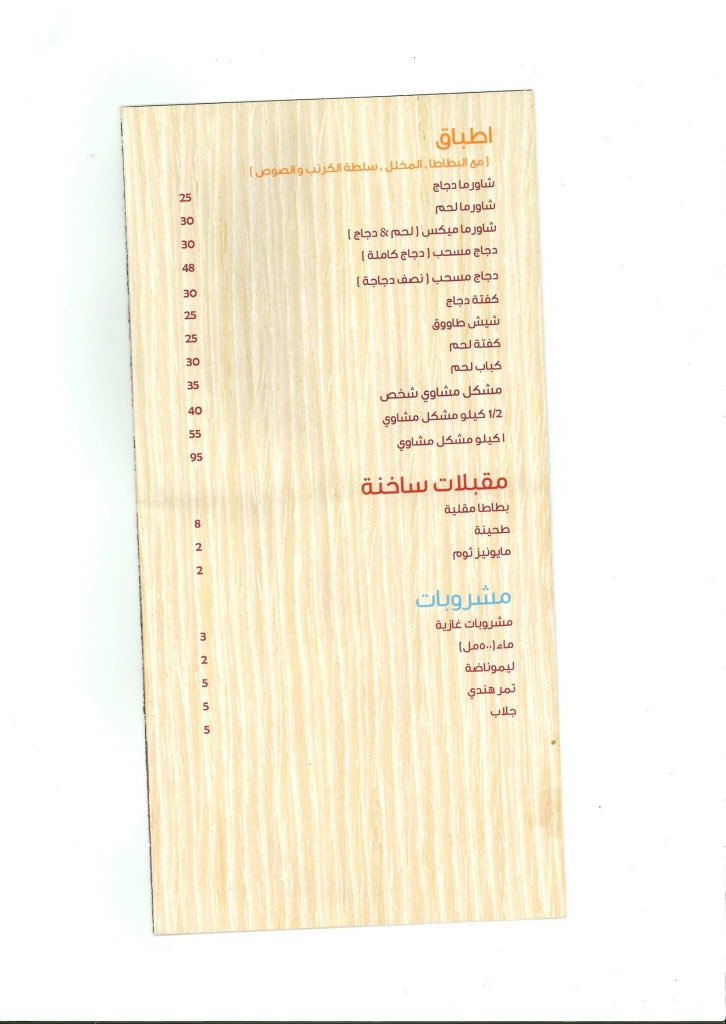 اطباق
( مع البطاطا , المخلل , سلطة الكرنب و الصوص )
شاورما دجاج 25
شاورما لحم 30
شاورما ميكس ( لحم & دجاج ) 30
دجاج مسحب ( دجاج كاملة ) 48
دجاج مسحب ( نصف دجاجة ) 30
كفتة دجاج 25
شيش طاووق 25
كفتة لحم 30
كباب لحم 35
مشكل مشاوي شخص 40
1/2 كيلو مشكل مشاوي 55
١ كيلو مشكل مشاوي 95
مقبلات ساخنة
بطاطا مقلية 8
طحينة 2
مايونيز ثوم 2
مشروبات
مشروبات غازية 3
ماء (٥٠٠مل) 2
ليموناضة 5
تمر هندي 5
جلاب 5